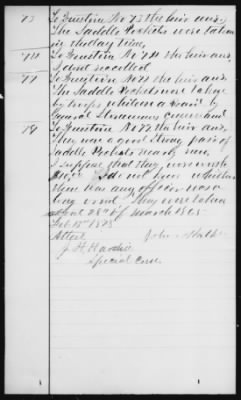 73 To Question No 73 the heir ans.
The Saddle Pockets were taken
in the day time,
74 To Question No 74 the heir ans
I dont recollect
77 To Question No 77 the heir ans
The Saddle Pockets were taken
by troops which were a part of
General Stoneman's command
78 To Question No 78 the heir ans,
They was a good strong pair of
Saddle Pockets nearly new.
I suppose that they were worth
I do not know whether
there was any officer near
they were taken
about 28th of March 1865
Feb 13th 1873
Attest John
J. H. Hardie
Special Com.